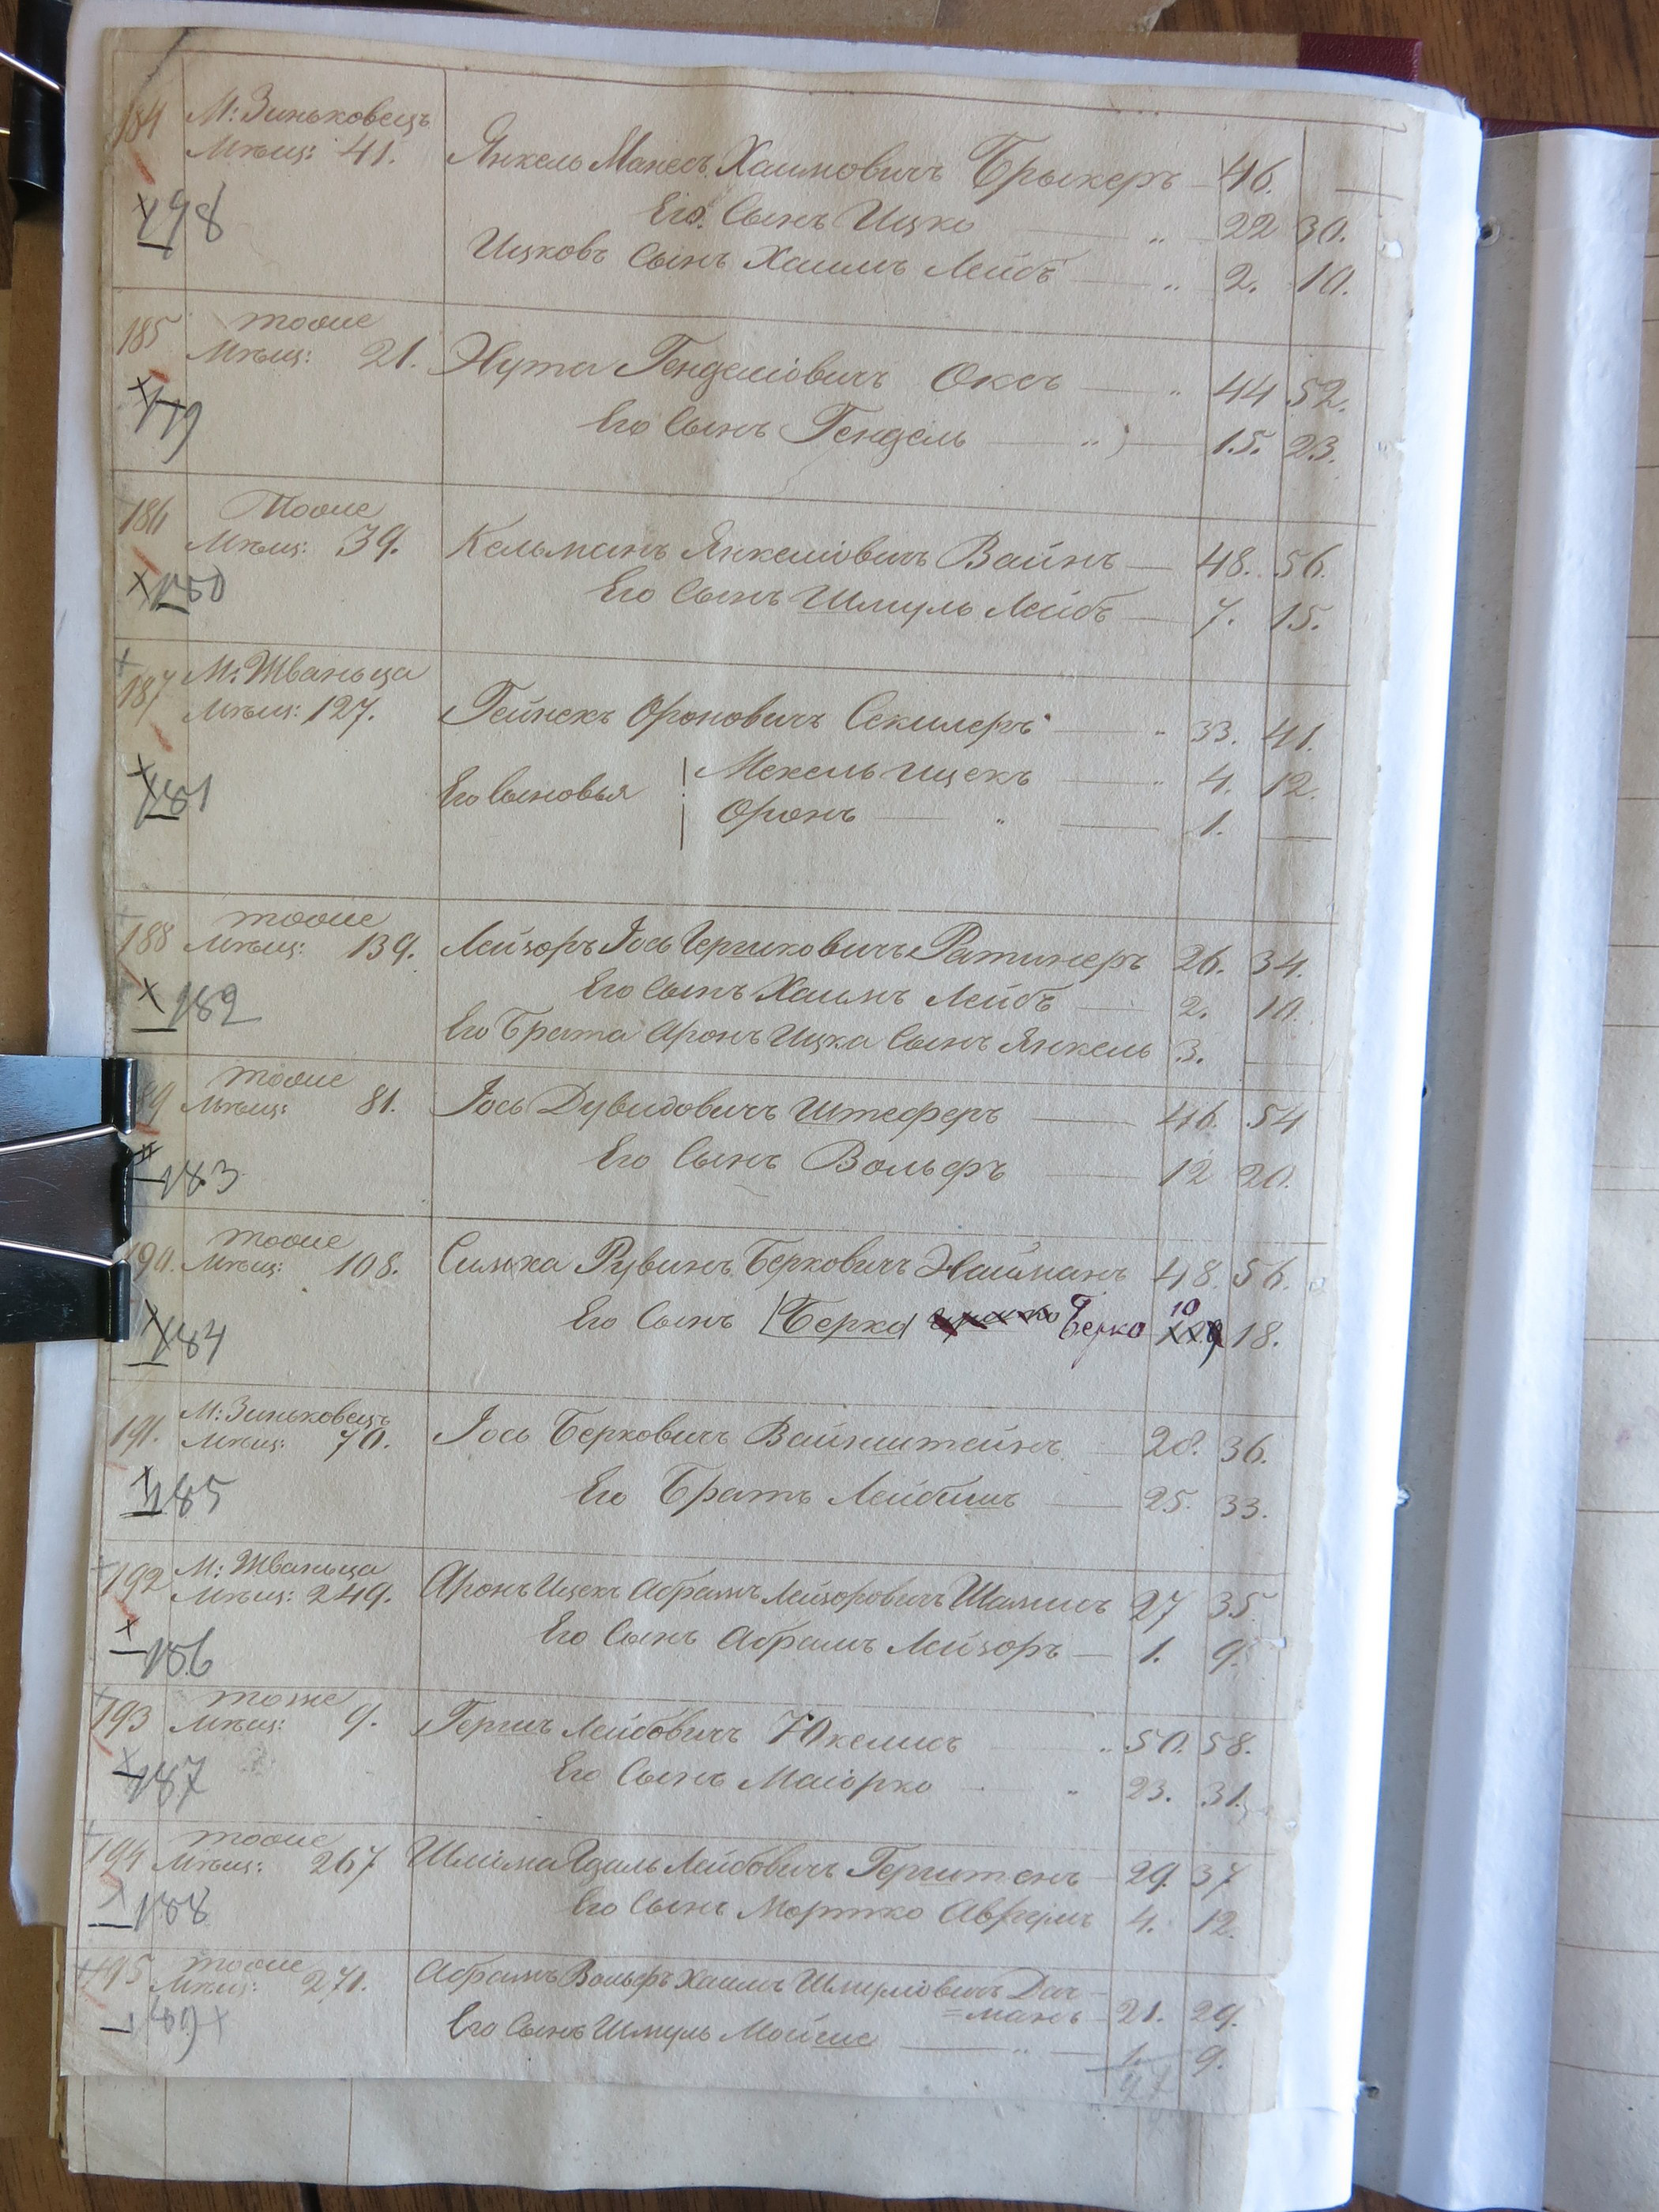 184 М: Зиньковецъ
Мѣщ: 41. Янкель Манесъ Хаимовичъ Брыкеръ — 46. —
Его Сынъ Ицко — „ 22 30.
198 Ицковъ Сынъ Хаимъ Лейбъ — „ 2. 10.
185 тоже
Мѣщ: 21. Нута Генделіовичъ Оксъ — „ 44 52.
179 Его Сынъ Гендель — „ — 15. 23.
186 Тоже
Мѣщ: 39. Кельманъ Янкеліовичъ Вайнъ — 48. 56.
180 Его Сынъ Шмуль Лейбъ — 7. 15.
187 М: Жваньца
Мѣщ: 127. Гейнехъ Ороновичъ Секилеръ — „ 33. 41.
Его Сыновья Мехель Ицекъ — „ 4. 12.
181 Оронъ — „ — 1. —
188 тоже
Мѣщ: 139. Лейзоръ Іось Гершковичъ Ратинеръ 26. 34.
182 Его Сынъ Хаимъ Лейбъ — 2. 10.
Его Брата Аронъ Ицка Сынъ Янкель 3. —
тоже
Мѣщ: 81. Іось Дувидовичъ Штеферъ — 46. 54
183 Его Сынъ Вольфъ — 12 20.
190. тоже
Мѣщ: 108. Симха Рувинъ Берковичъ Найманъ 48. 56.
184 Его Сынъ Берко Берко 10 18.
191. М: Зиньковецъ
Мѣщ: 70. Іось Берковичъ Вайнштейнъ — 28. 36.
185 Его Братъ Лейбишъ — 25. 33.
192 М: Жваньца
Мѣщ: 249. Аронъ Ицекъ Абрамъ Лейзоровичъ Шамисъ 27 35
186 Его Сынъ Абрамъ Лейзоръ — 1. 9.
193 тоже
Мѣщ: 9. Гершъ Лейбовичъ Юкелисъ — „ 50. 58.
187 Его Сынъ Маіорко — „ 23. 31.
194 тоже
Мѣщ: 267 Шліома Лейбовичъ Герштенъ — 29. 37
188 Его Сынъ Мортко Аврумъ 4. 12.
195 тоже
Мѣщ: 271. Абрамъ Вольфъ Хаимъ Шмуліовичъ
=манъ — 21. 29.
189 Его Сынъ Шмуль Мойше — „ — 1. 9.